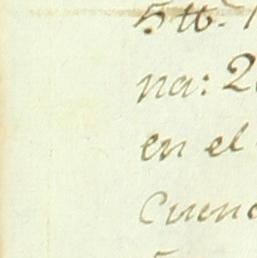 5 tt.
na: 2
en el
Cuenc